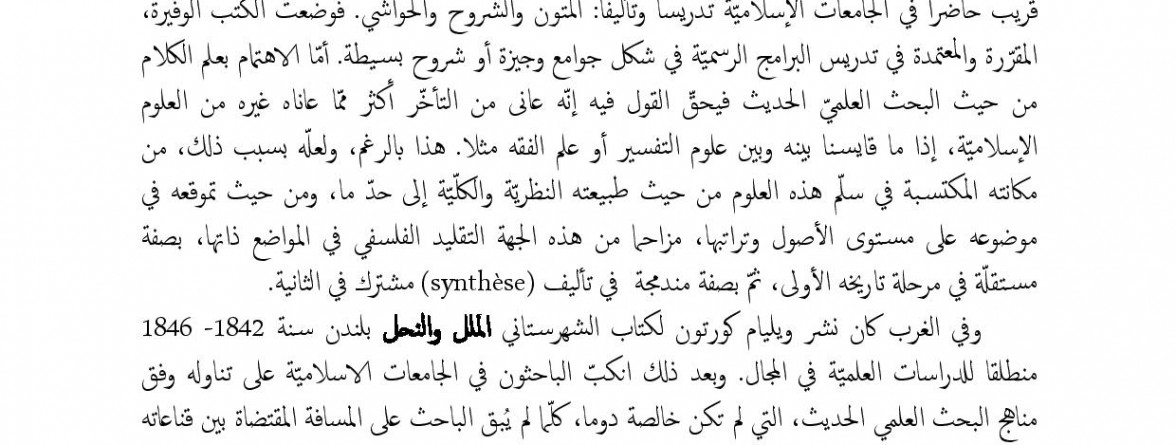 قريب حاضرا في الجامعات الإسلاميّة تدريسا وتأليفا: المتون والشروح والحواشي. فوضعت الكتب الوفيرة،
المقرّرة والمعتمدة في تدريس البرامج الرسميّة في شكل جوامع وجيزة أو شروح بسيطة. أمّا الاهتمام بعلم الكلام
من حيث البحث العلميّ الحديث فيحقّ القول فيه إنّه عانى من التأخّر أكثر ممّا عاناه غيره من العلوم
الإسلاميّة، إذا ما قايسنا بينه وبين علوم التفسير أو علم الفقه مثلا. هذا بالرغم، ولعلّه بسبب ذلك، من
مكانته المكتسبة في سلّم هذه العلوم من حيث طبيعته النظريّة والكلّيّة إلى حدّ ما، ومن حيث تموقعه في
موضوعه على مستوى الأصول وتراتبها، مزاحما من هذه الجهة التقليد الفلسفي في المواضع ذاتها، بصفة
مستقلّة في مرحلة تاريخه الأولى، ثمّ بصفة مندمجة في تأليف (synthèse) مشترك في الثانية.
وفي الغرب كان نشر ويليام كورتون لكتاب الشهرستاني الملل والنحل بلندن سنة 1842- 1846
منطلقا للدراسات العلميّة في المجال. وبعد ذلك انكبّ الباحثون في الجامعات الاسلاميّة على تناوله وفق
مناهج البحث العلمي الحديث، التي لم تكن خالصة دوما، كلّما لم يُبق الباحث على المسافة المقتضاة بين قناعاته